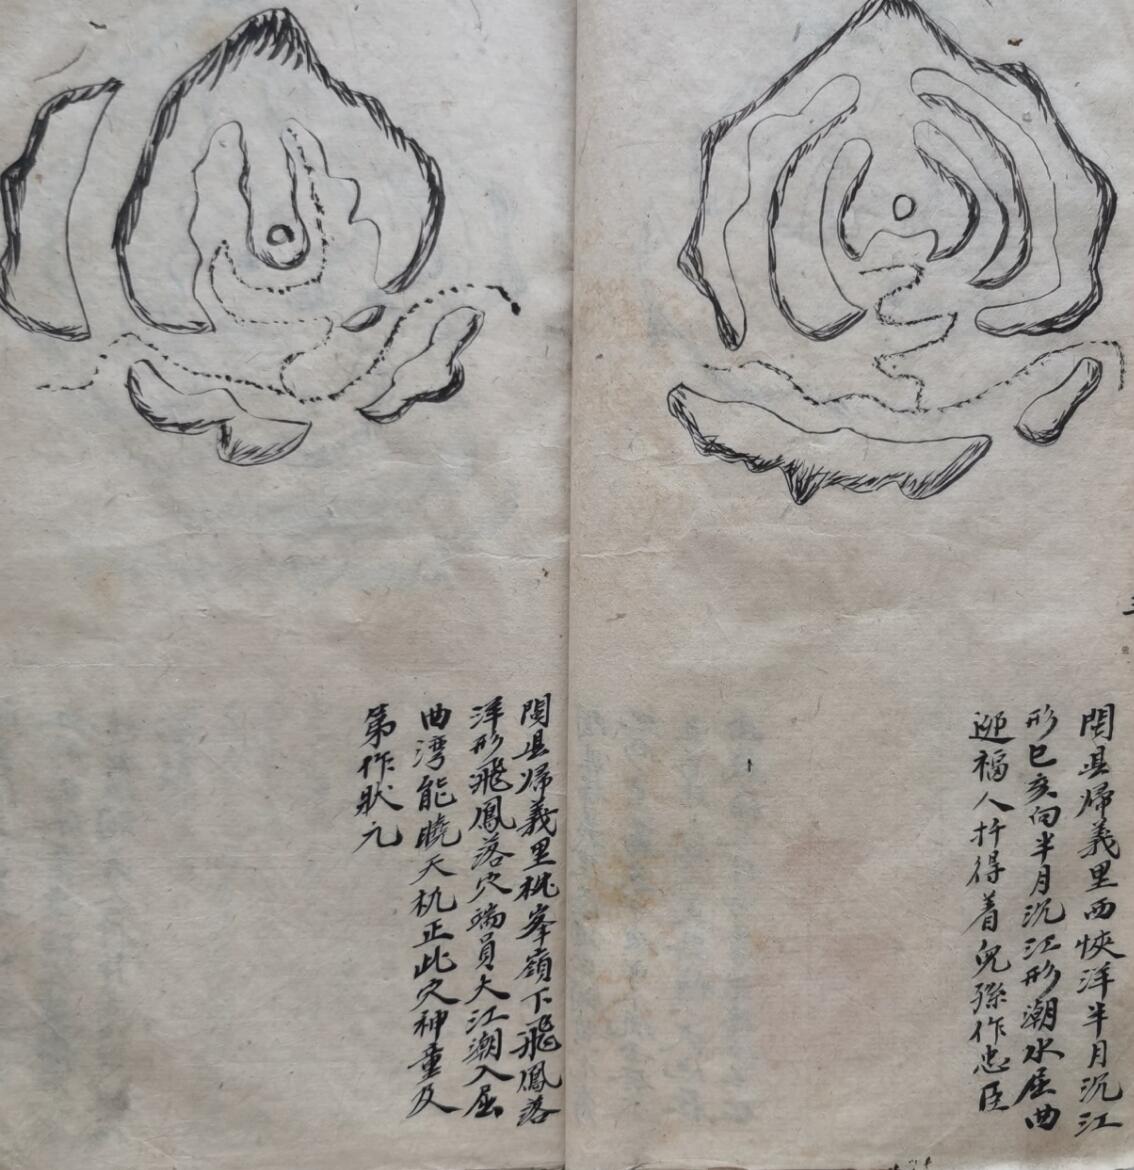 閩县歸義里西悏洋半月沉江
形巳亥向半月沉江形潮水屈曲
迎福人扦得着兒孫作忠臣
閩县歸義里桃峯嶺下飛鳳落
洋形飛鳳落穴端員大江潮入屈
曲湾能曉天机正此穴神童及
第作狀元